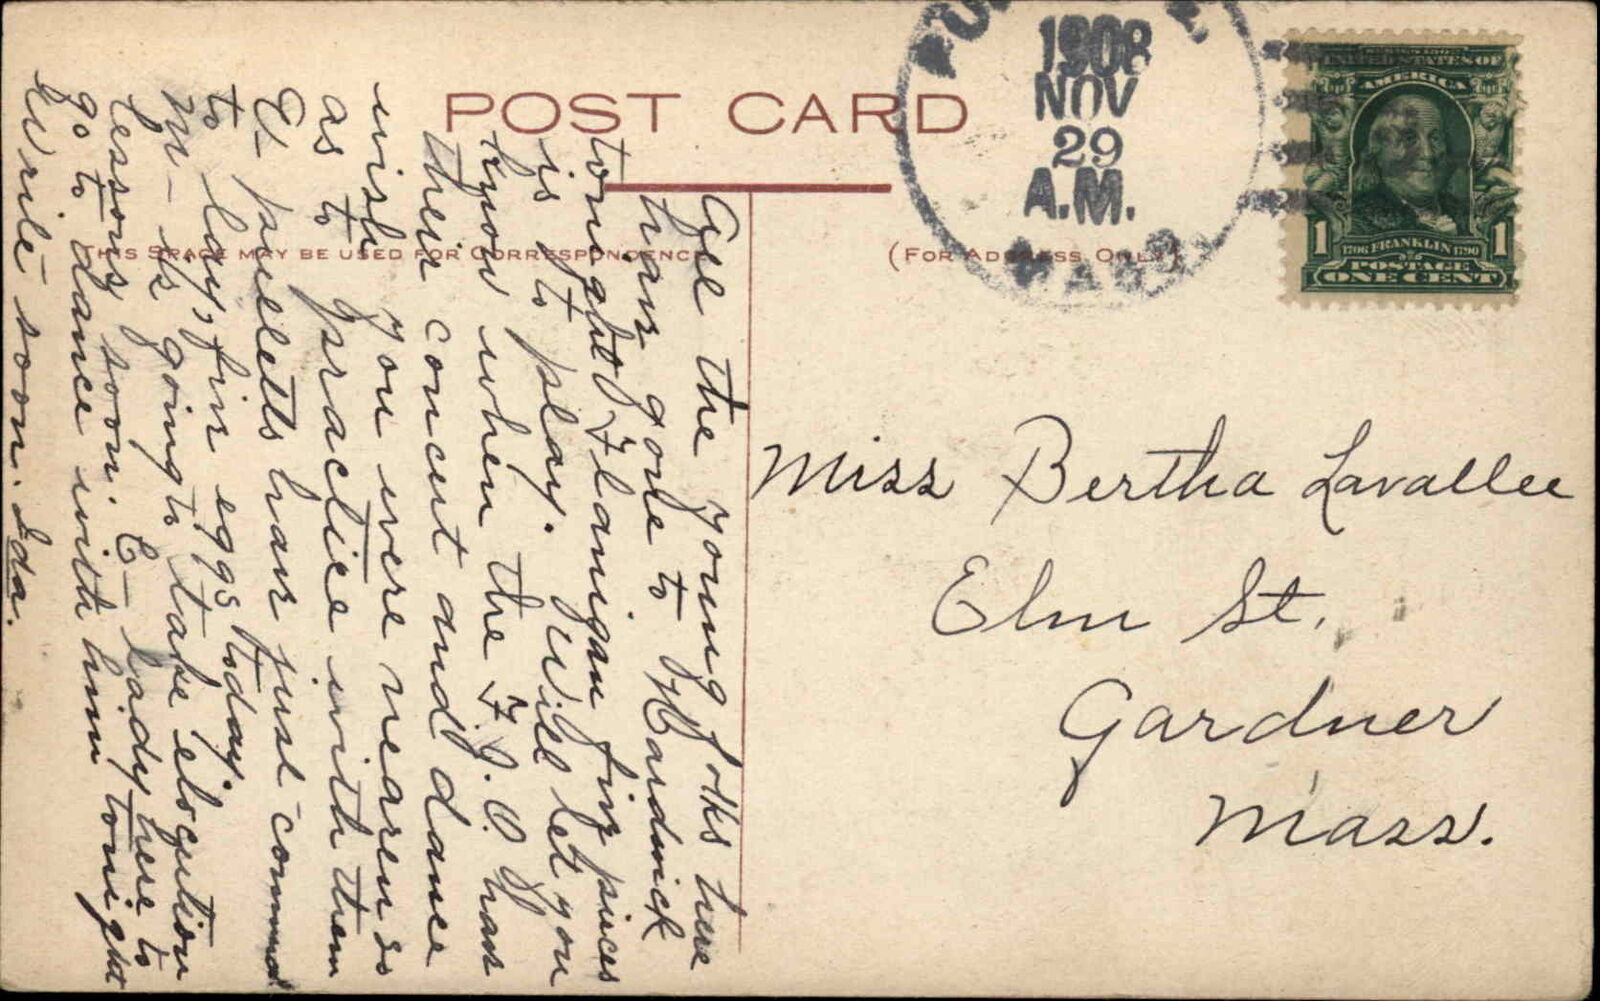 POST CARD
THIS SPACE MAY BE USED FOR CORRESPONDENCE
(FOR ADDRESS ONLY)
1908
NOV
29
A.M.
MASS
UNITED STATES OF
AMERICA
1706 FRANKLIN 1790
1 1
POSTAGE
ONE CENT
All the young folks here
hav gone to Hardwick
tonight Flanigan five pieces
is to play. Will let you
know when the F. J. O. hav
their concert and dance
wish you were nearer so
as to practice with them
E- pulletts hav just commenced
to lay, fiv eggs today.
M- is going to take elocution
lessons soon. E- lady here to
go to dance with him tonight
Write soon. Ida.
Miss Bertha Lavallee
Elm St.
Gardner
Mass.